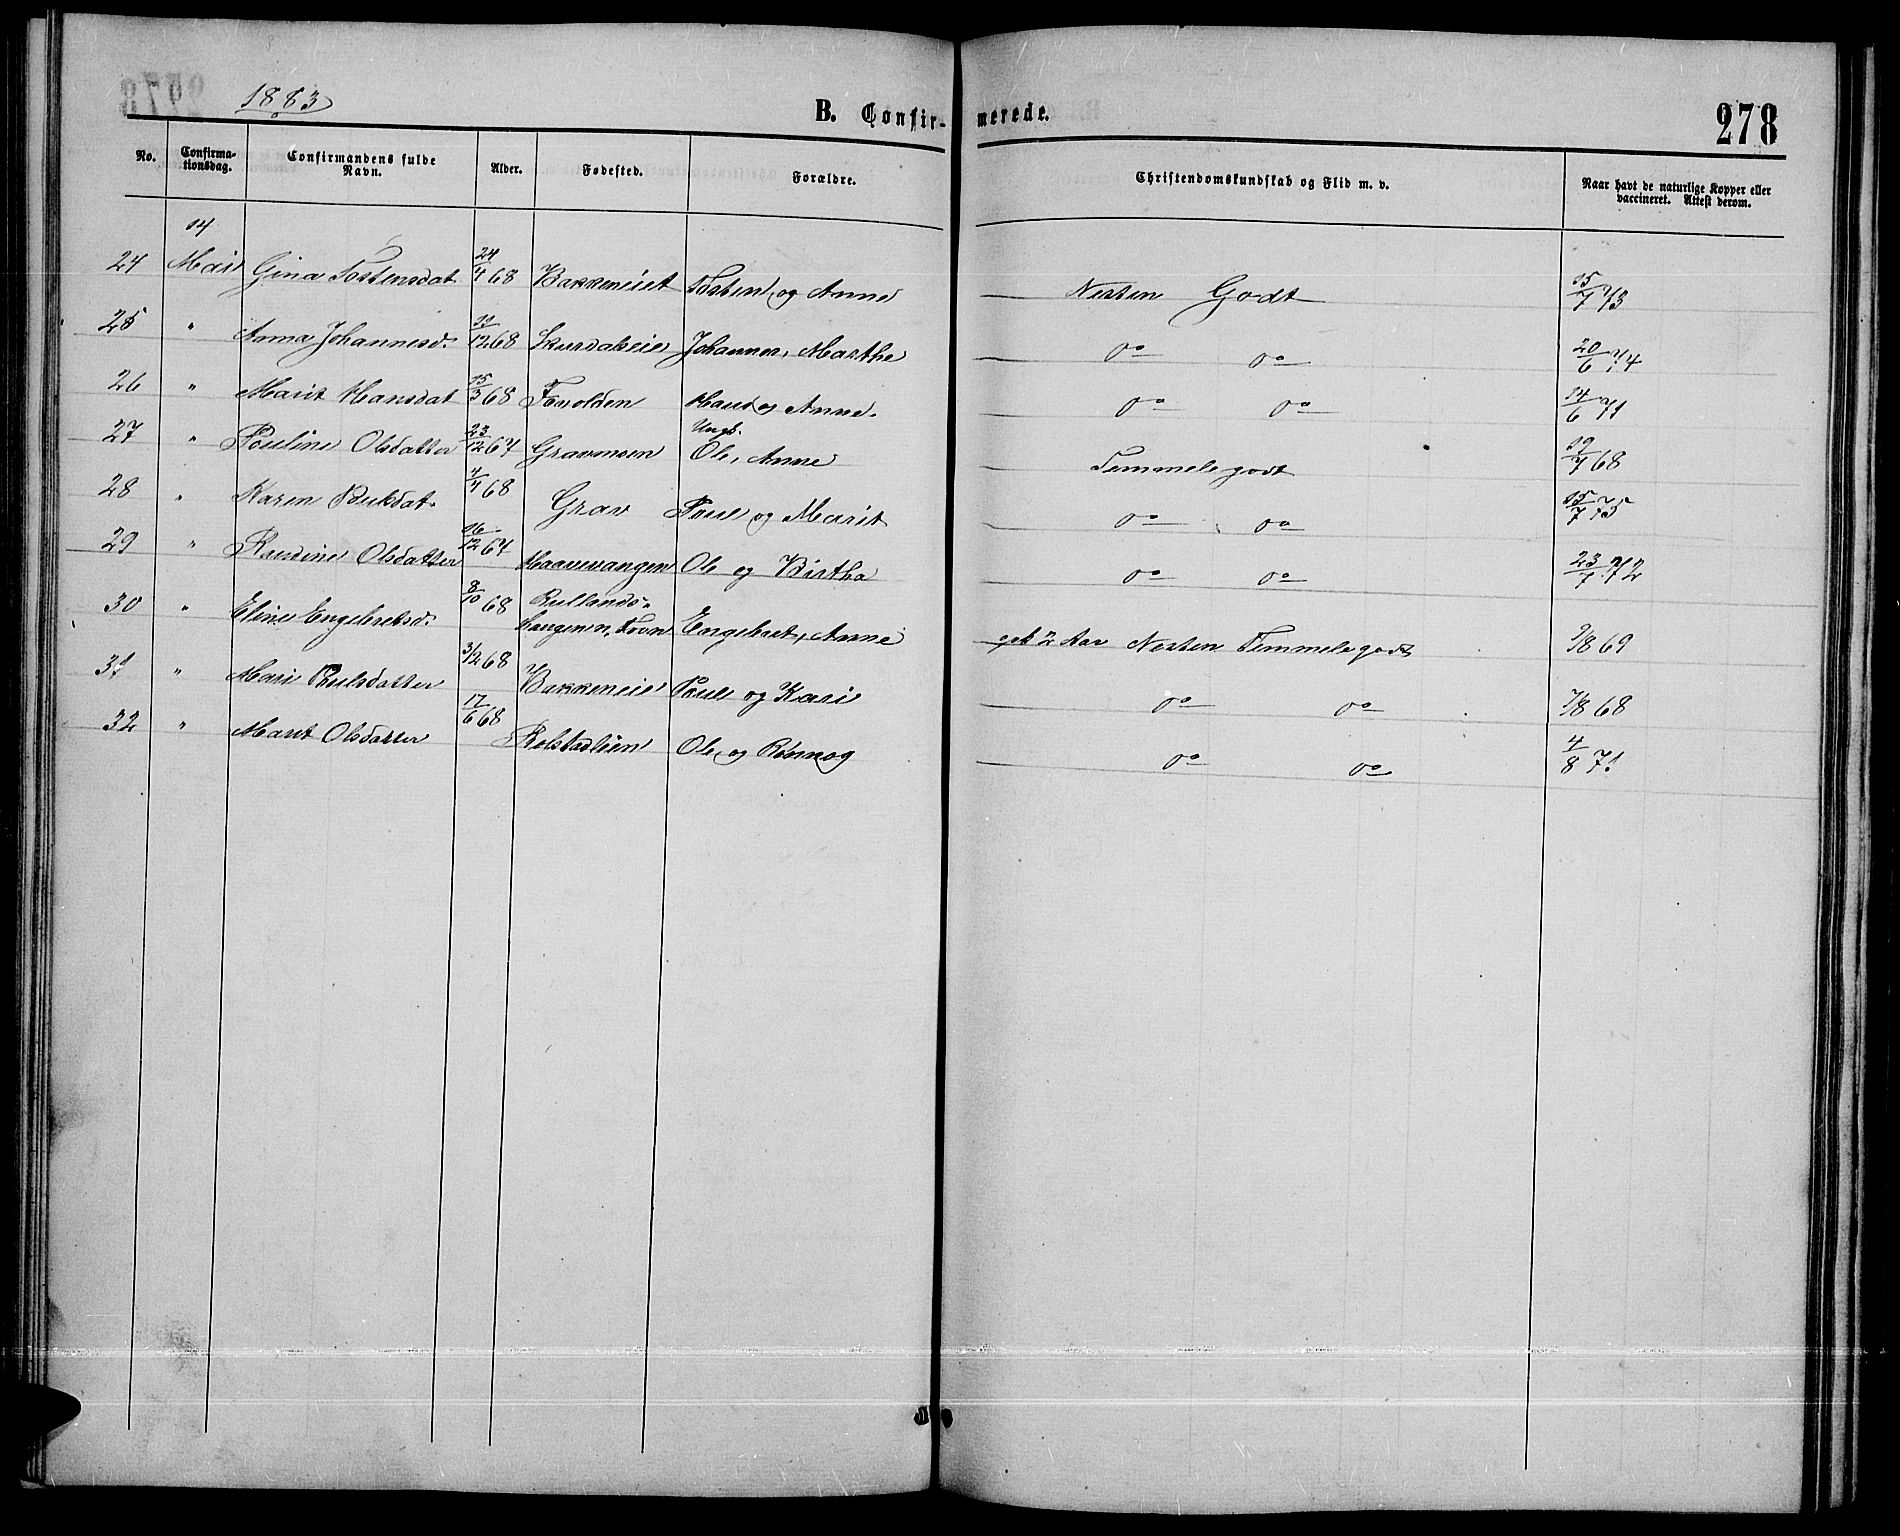 1883
B. Confir-
merede.
278
No.
Confirma-
tionsdag.
Confirmandens fulde
Navn.
Alder.
Fødested.
Forældre.
Christendomskundskab og Flid m. v.
Naar havt de naturlige Kopper eller
vaccineret. Attest derom.
14
24 Mai Gina Tostensdat 24/4 68 Bakkeneiet Tosten og Anne Nesten Godt 15/7 73
25 " Anna Johannesd. 11/12 68 Johannes, Marthe do do 20/6 74
26 " Marit Hansdat 15/3 68 Hans og Anne. do do 14/6 71
Ungk.
27 " Pouline Olsdatter 23/12 67 Gravmoen Ole, Anne Temmele godt 19/7 68
28 " Karen Poulsdat. 4/4 68 Grav Poul og Marit do do 15/7 75
29 " Olsdatter 16/12 67 Ole og Birtha do do 23/7 72
30 " Eline Engebretsd. 8/10 68 Rullands-
haugen n. Fron Engebret, Anne gik 2 Aar Nesten Temmele godt 9/8 69
31 " Mari Poulsdatter 3/12 68 Bakkeneie Poul og Kari do do 7/8 68
32 " Marit Olsdatter 17/6 68 Rolstadlien Ole og Rønnog do do 4/8 71